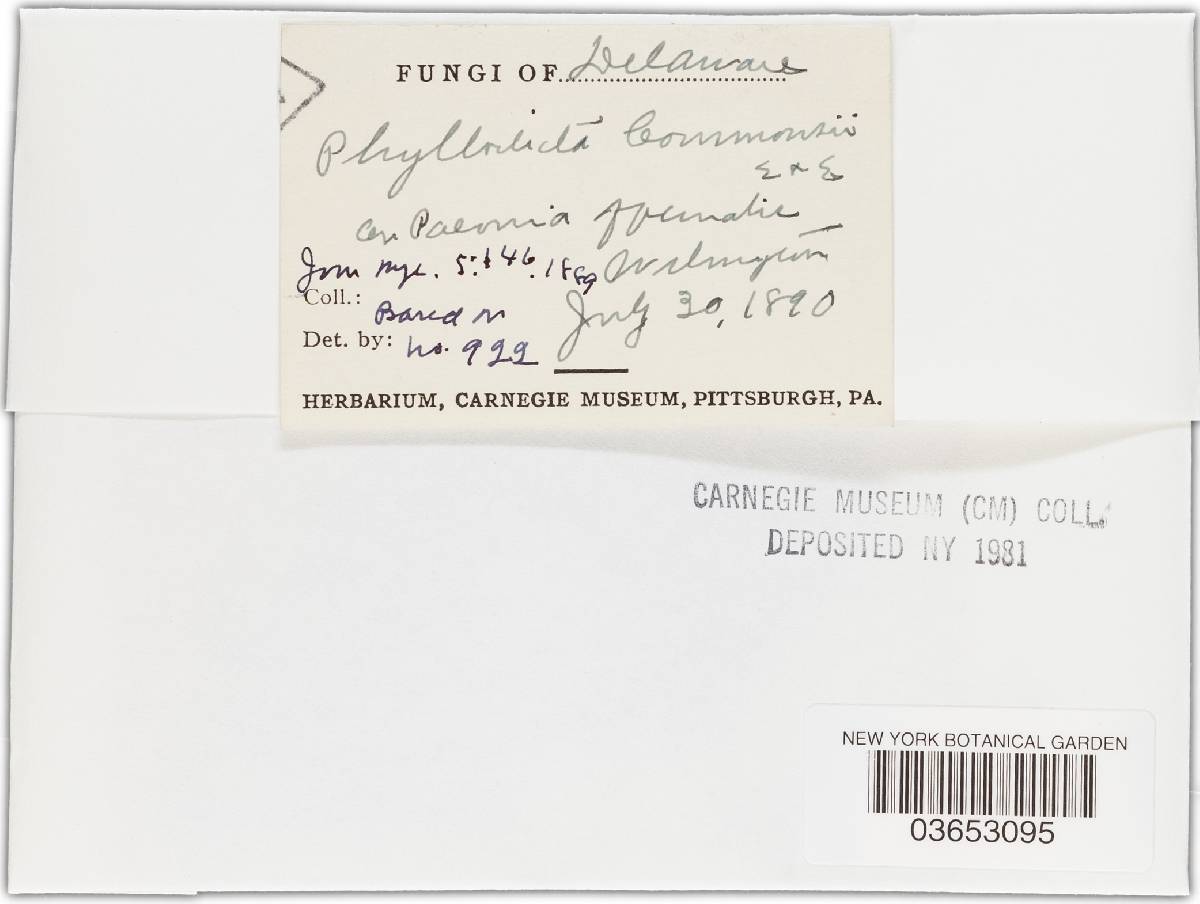 FUNGI OF Delaware
Phyllosticta Commonsii
E & E
on Paeonia officinalis
Jour Myc. 5: 146. 1889 Wilmington
Coll.: Based on July 30, 1890
Det. by: no. 922
HERBARIUM, CARNEGIE MUSEUM, PITTSBURGH, PA.
CARNEGIE MUSEUM (CM) COLL.
DEPOSITED NY 1981
NEW YORK BOTANICAL GARDEN
03653095